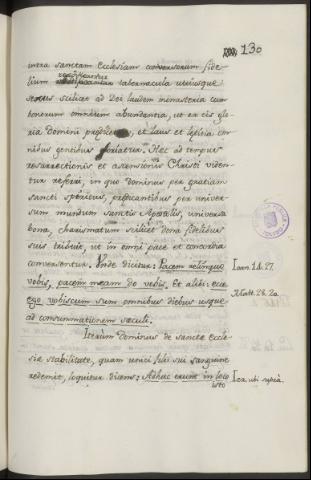 130
intra sanctam Ecclesiam conversorum fide-
lium tabernacula utriusque
sexus scilicet ad Dei laudem monasteria cum
bonorum omnium abundantia, ut ex eis glo-
ria Domini et laus et lætitia om-
nibus gentibus oriatur. Hec ad tempus
resurrectionis et ascensionis Christi viden-
tur referri, in quo Dominus per gratiam
sancti spiritus, predicantibus per univer-
sum mundum sanctis Apostolis, universa
bona, charismatum scilicet dona fidelibus
suis tribuit, ut in omni pace et concordia
conversentur. Unde dicitur: Pacem relinquo
vobis, pacem meam do vobis. Et alibi: ecce
ego vobiscum sum omnibus diebus usque
ad consummationem sæculi.
Joan. 14. 27.
Matt. 28. 20
Iterum Dominus de sancte Eccle-
siæ stabilitate, quam unici filii sui sanguine
redemit, loquitur dicens: Adhuc erunt in loco
isto
ubi supra.